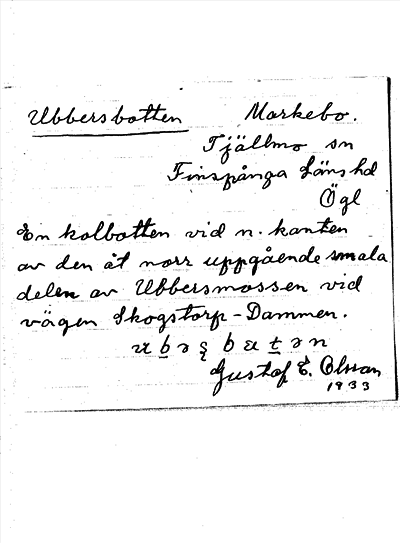 Ubbersbotten Markebo.
Tjällmo sn
Finspånga Läns hd
Ögl
En kolbotten vid n. kanten
av den åt norr uppgående smala
delen av Ubbersmossen vid
vägen Skogstorp-Dammen.
Gustaf E. Olsson
1933